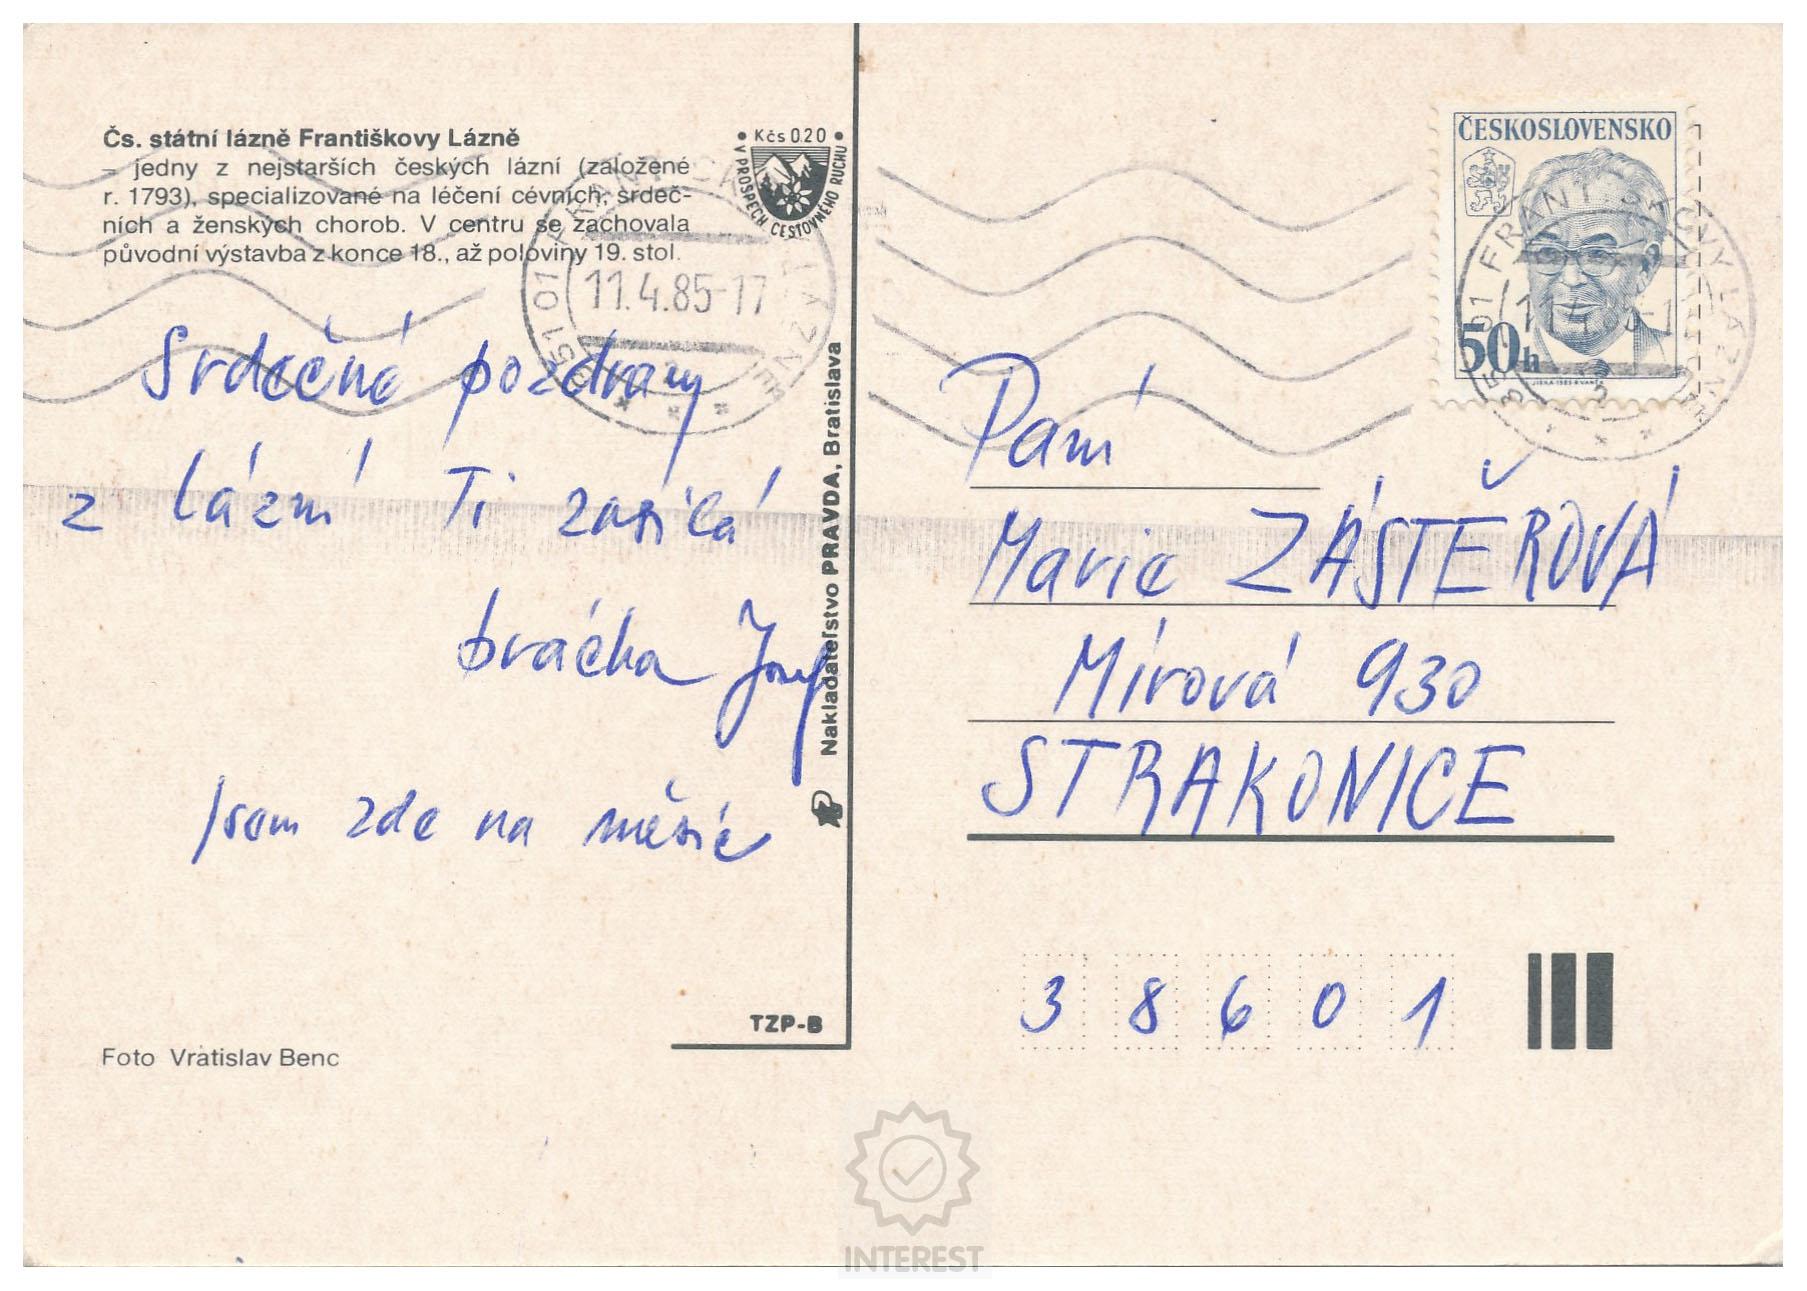 Čs. státní lázně Františkovy Lázně
– jedny z nejstarších českých lázní (založené
r. 1793), specializované na léčení cévních, srdeč-
ních a ženských chorob. V centru se zachovala
původní výstavba z konce 18., až poloviny 19. stol.
• Kčs 0.20 •
V PROSPĚCH CESTOVNÉHO RUCHU
351 01 FRANTIŠKOVY LÁZNĚ
11.4.85-17
Srdečné pozdravy
z lázní Ti zasílá
brácha Josef
Jsem zde na měsíc
Nakladateľstvo PRAVDA, Bratislava
TZP-B
Foto Vratislav Benc
ČESKOSLOVENSKO
50h
351 01 FRANTIŠKOVY LÁZNĚ
Paní
Marie ZÁSTĚROVÁ
Mírová 930
STRAKONICE
38601
INTEREST